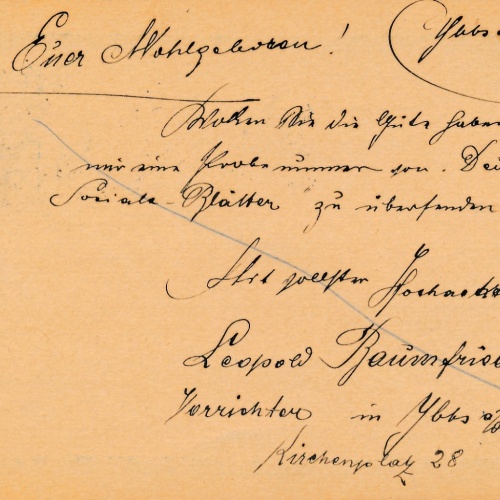 Ybbs
Euer Wohlgeboren!
Wollen Sie die Güte haben
mir eine Probenummer von. Deu
Soziale-Blätter zu übersenden
Mit vollster Hochacht
Leopold Baumfrise
Vorrichter in Ybbs a/D
Kirchenplatz 28